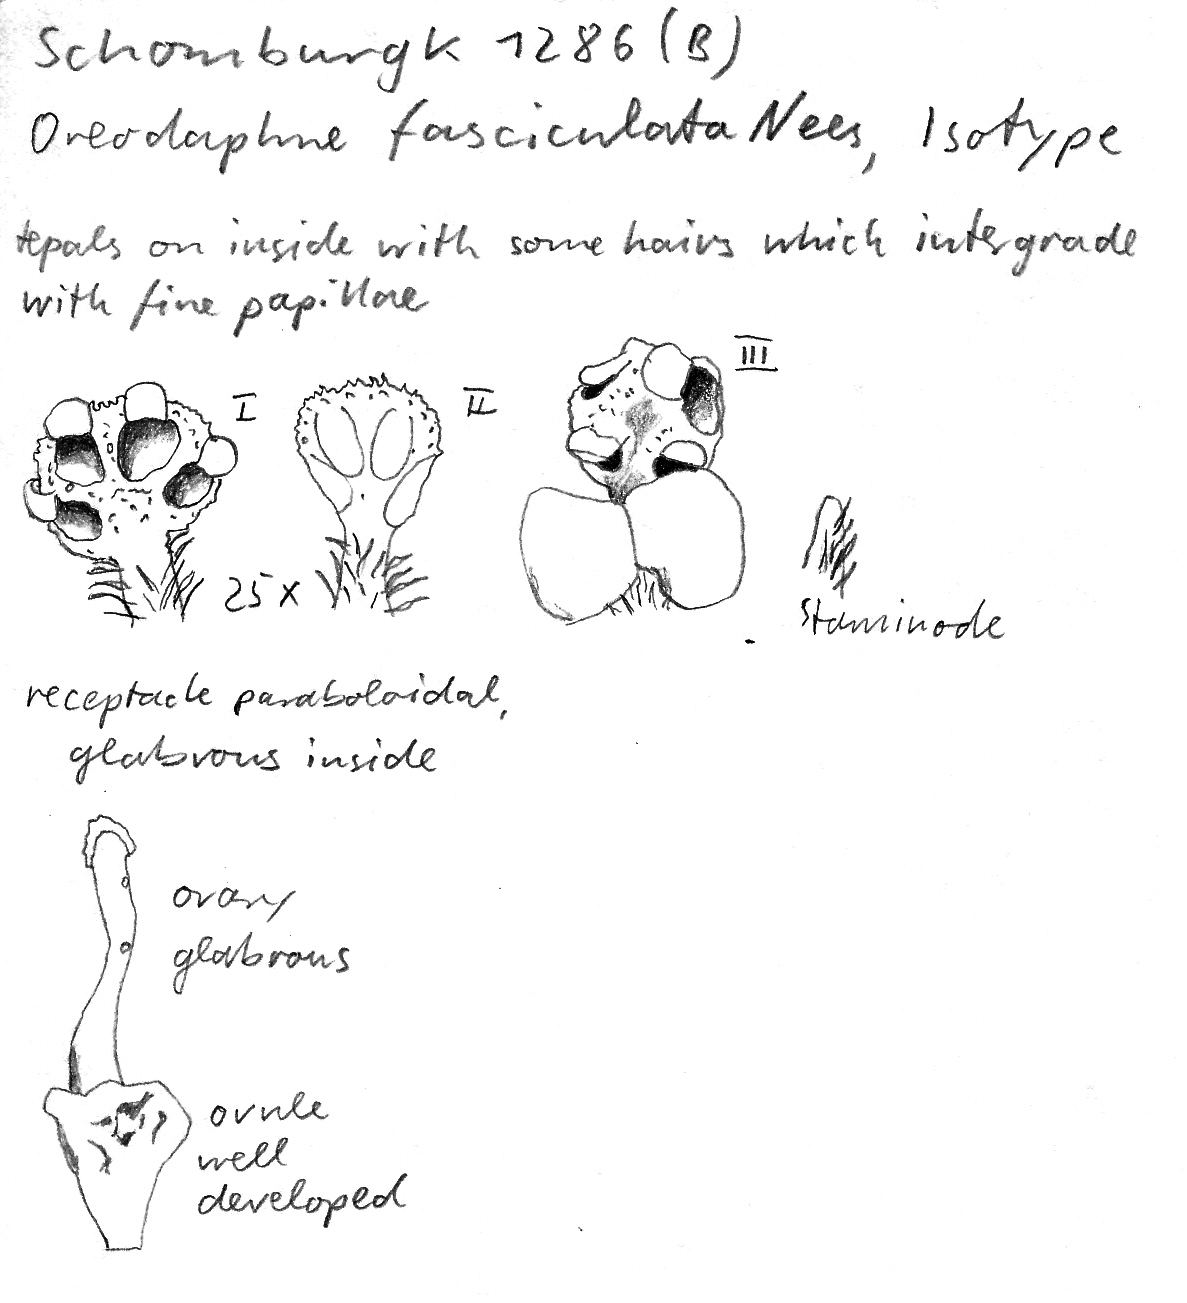 Schomburgk 1286 (B)
Oreodaphne fasciculata Nees, Isotype
tepals on inside with some hairs which intergrade
with fine papillae
I
II
III
25 x
Staminode
receptacle paraboloidal,
glabrous inside
ovary
glabrous
ovule
well
developed